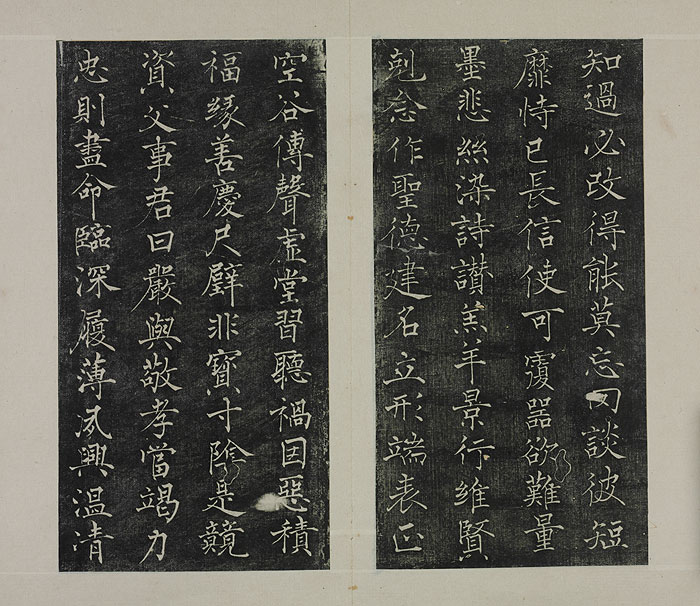 知過必改得能莫忘罔談彼短
靡恃己長信使可覆器欲難量
墨悲絲染詩讚羔羊景行維賢
剋念作聖德建名立形端表正
空谷傳聲虛堂習聽禍因惡積
福緣善慶尺璧非寶寸陰是競
資父事君曰嚴與敬孝當竭力
忠則盡命臨深履薄夙興温凊